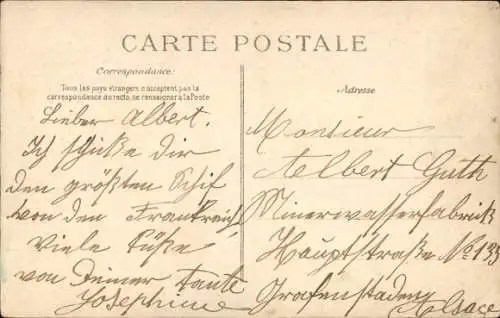 CARTE POSTALE
Correspondance:
Tous les pays étrangers n'acceptent pas la
correspondance au recto, se renseigner à la Poste
Lieber Albert.
Ich schicke Dir
den größten Schif
von den Frankreich,
Viele Küße
von Deiner Tante
Josephine
Adresse
Monsieur
Aelbert Guth
Minerwasserfabrick
Hauptstraße No 133
Grafenstaden Alsace